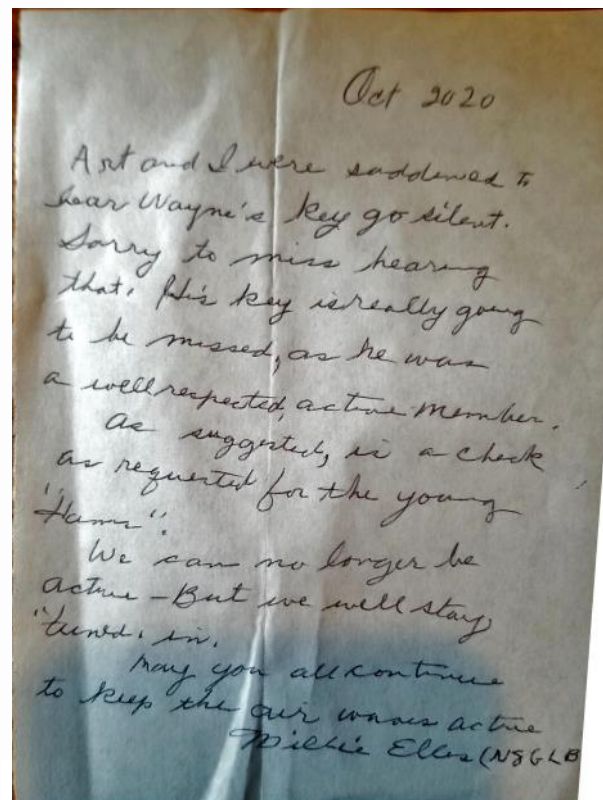 Oct 2020
Art and I were saddened to
hear Wayne's key go silent.
Sorry to miss hearing
that. His key is really going
to be missed, as he was
a well respected, active member.
As suggested, is a check
as requested for the young
"Hams".
We can no longer be
active - But we will stay
"tuned. in.
May you all continue
to keep the air waves active
Millie Elles (N8GLB